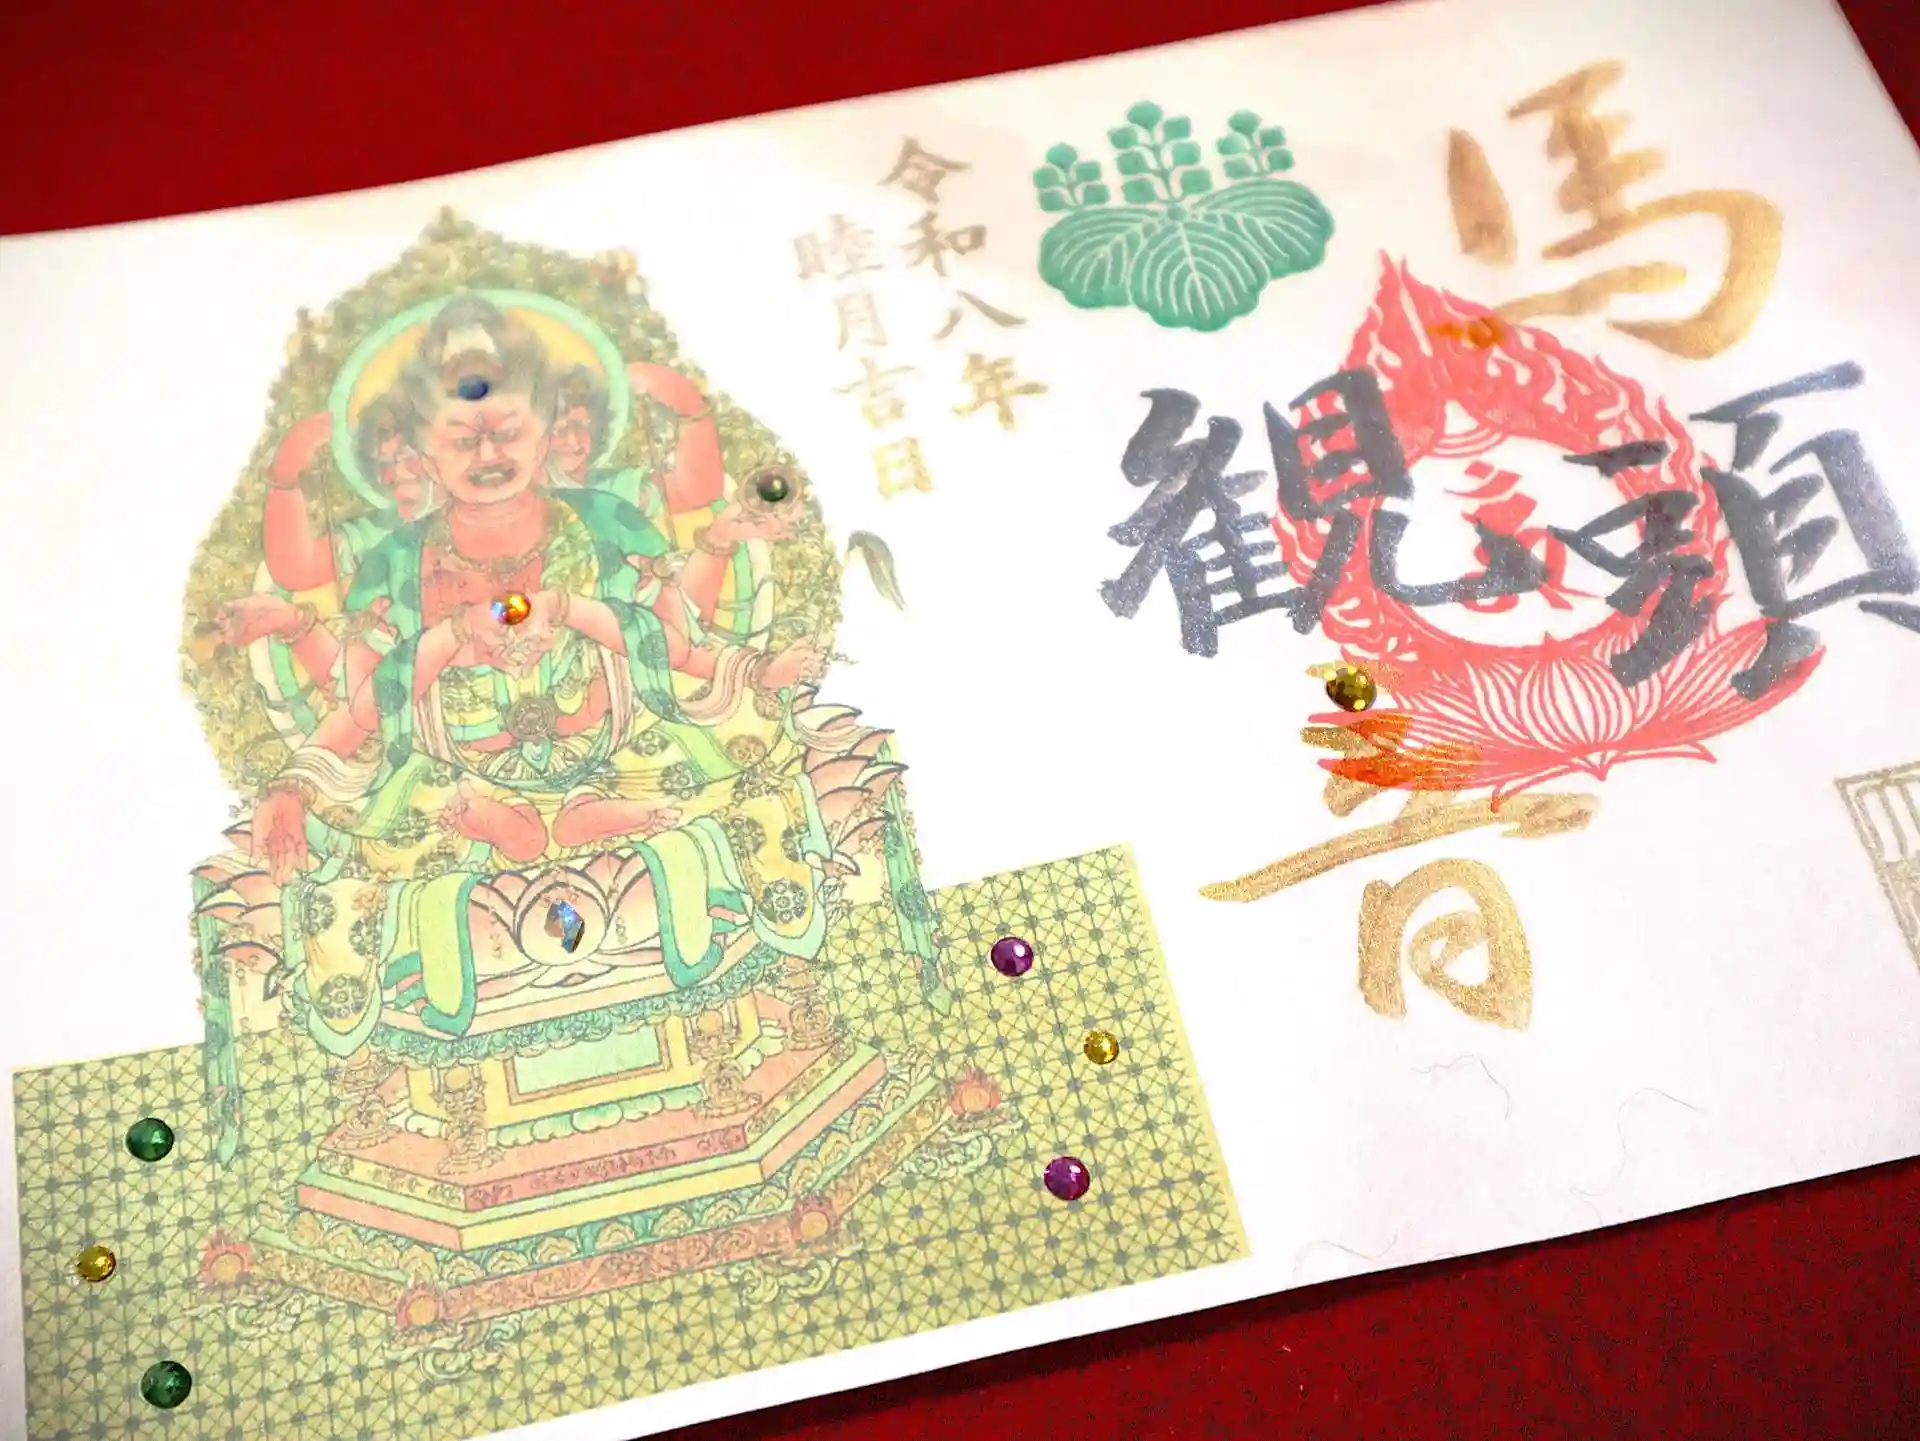 馬
頭
観
音
令和八年
睦月吉日